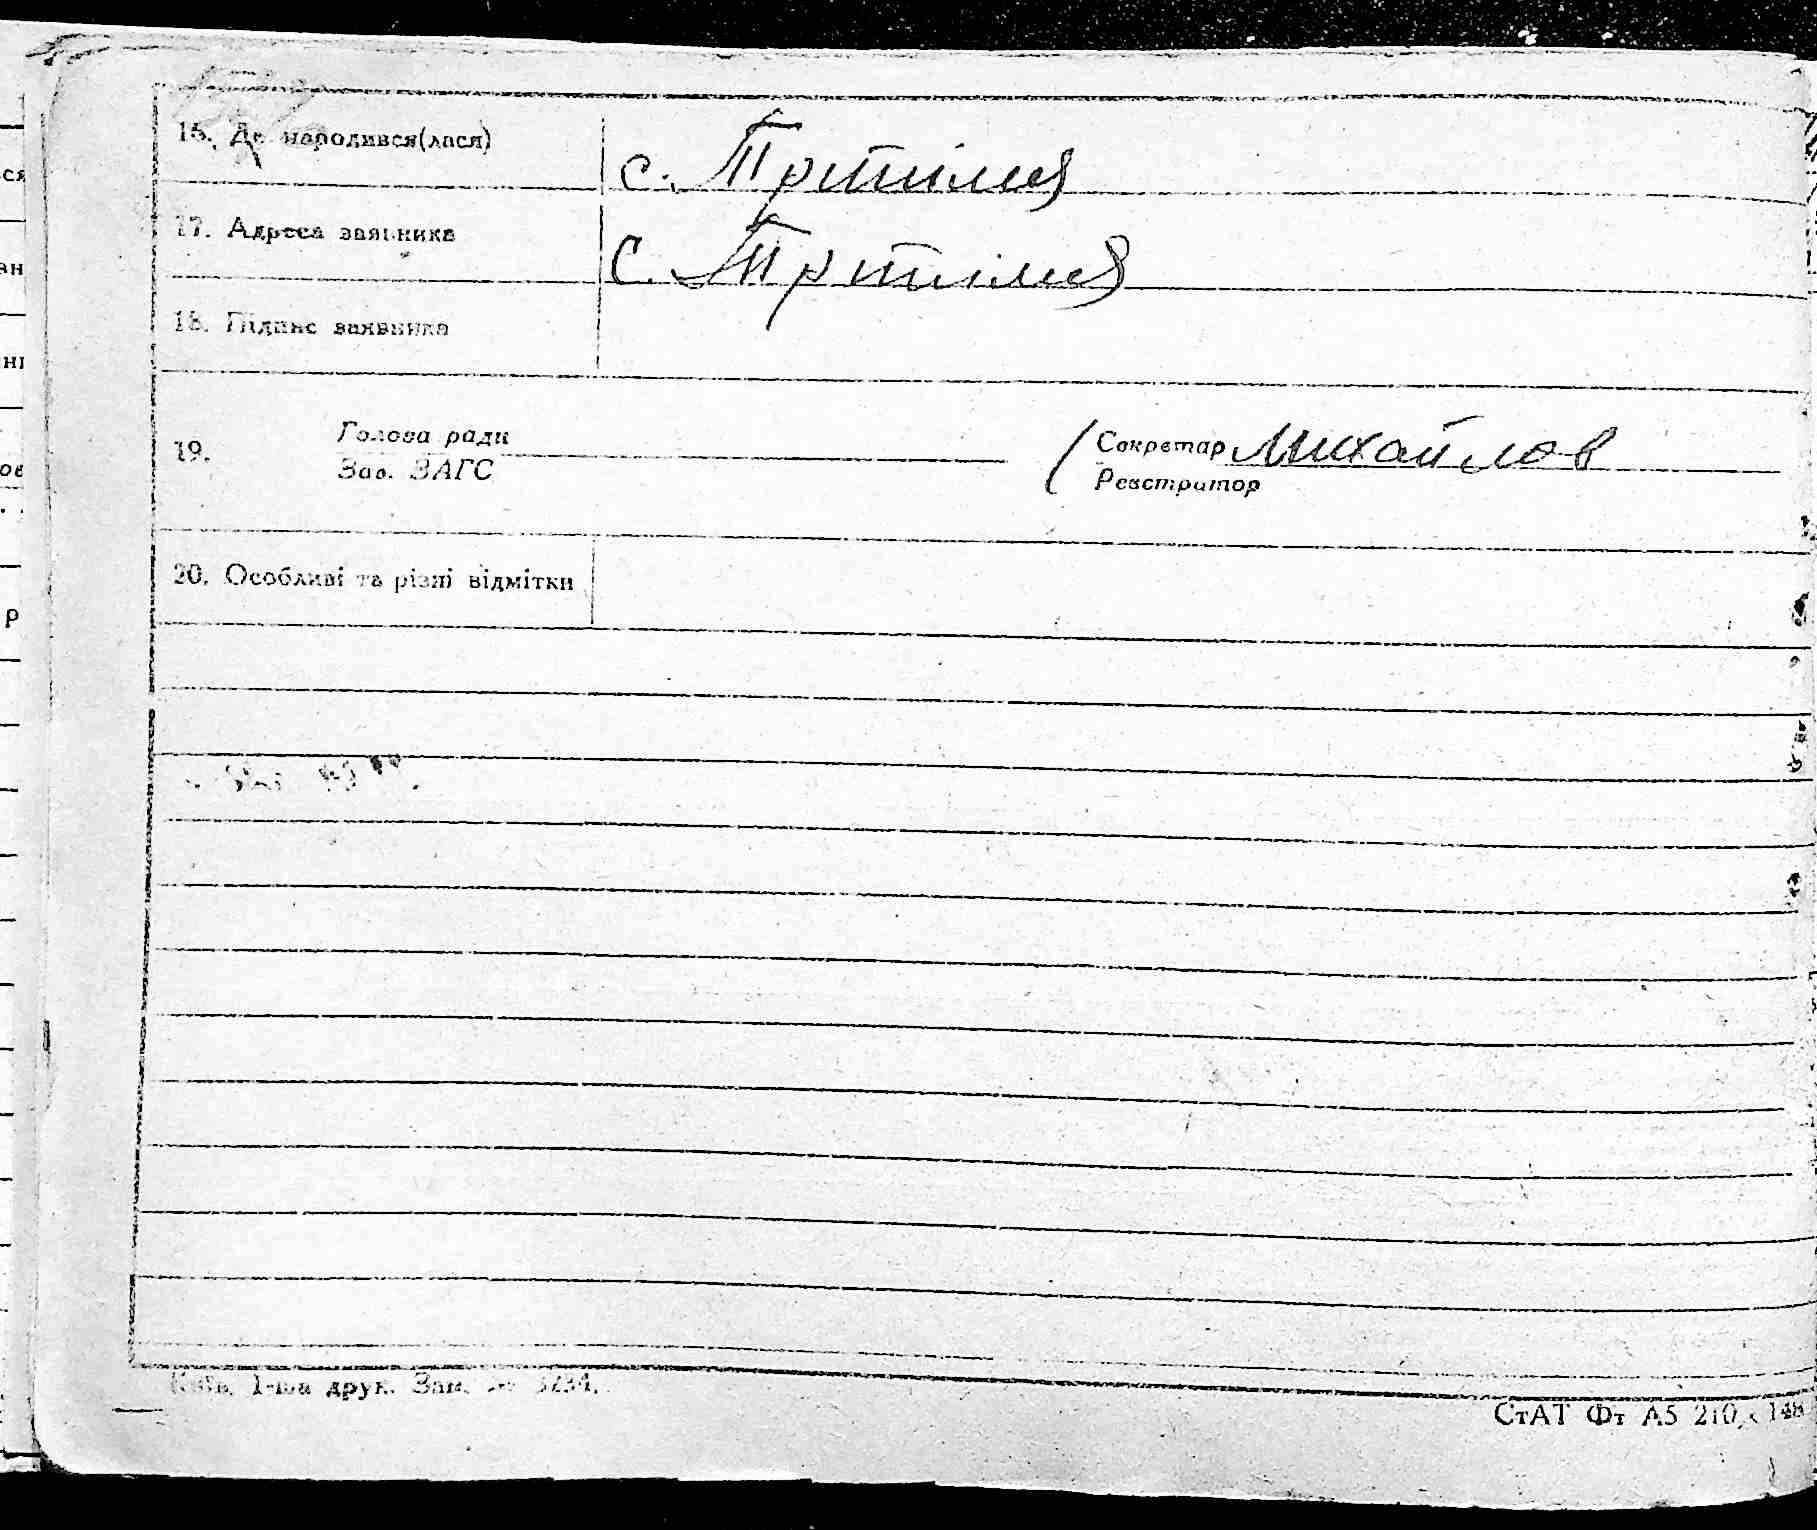 16. Де народився(лася) с.
17. Адреса заявника с.
18. Підпис заявника
19. Голова ради Секретар Михайлов
Зав. ЗАГС Реєстратор
20. Особливі та різні відмітки
Київ. 1-ша друк. Зам. № 3234.
СтАТ Фт А5 210 х 148